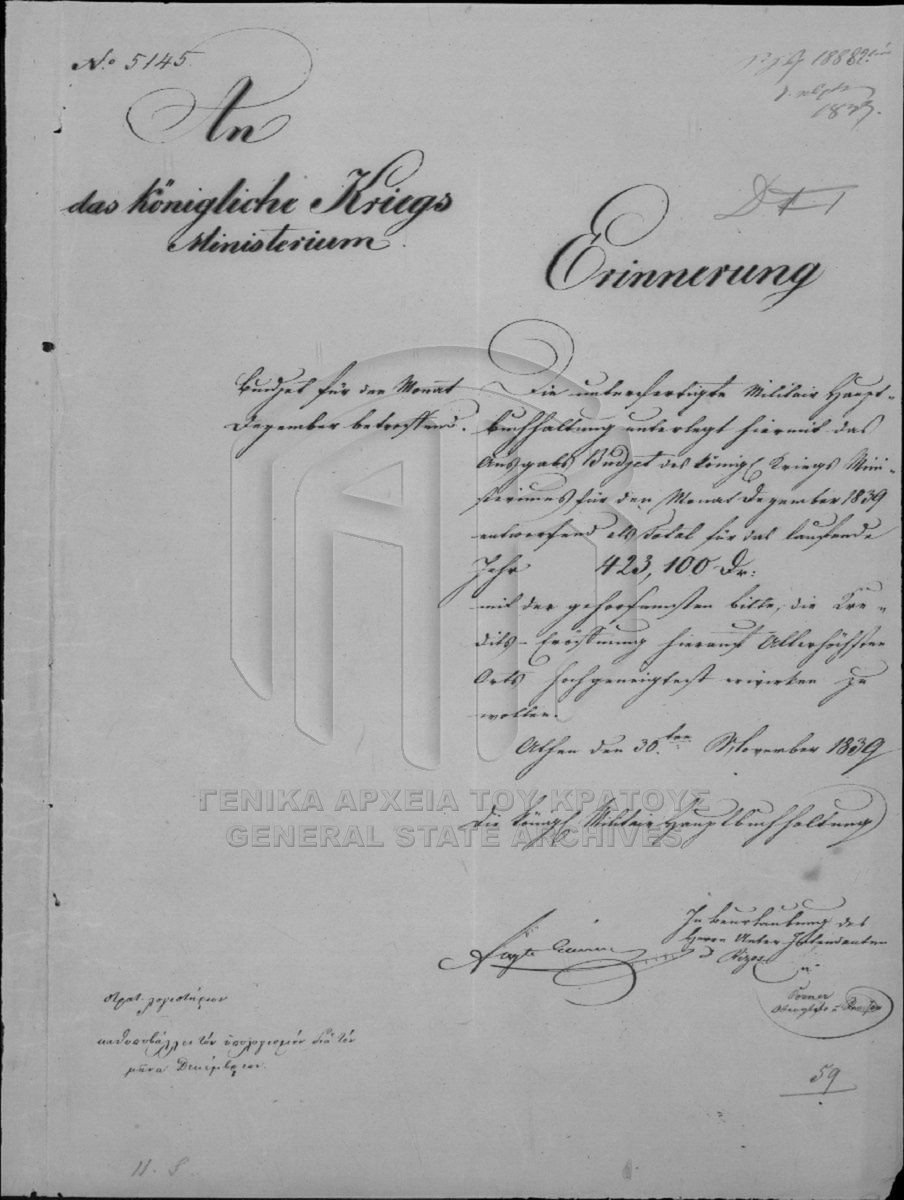 No. 5145
1888
1839.
An
das Königliche Kriegs
Ministerium.
Erinnerung
Budjet für den Monat
Dezember betreffend.
Die unterfertigte Militair Haupt-
buchhaltung unterlegt hiermit das
Ausgabs Budjet des Königl Kriegs Mini-
steriumes für den Monat Dezember 1839
entwerfend als Total für das laufende
Jahr 423,100 Dr:
mit der gehorsamsten Bitte, die Kre-
dits-Eröffnung hierauf Allerhöchsten
Orts hochgeneigtest erwirken zu
wollen.
Athen den 30ten November 1839
Die Königl Militair Hauptbuchhaltung
In Beurlaubung des
Herrn Unter Intendanten
ΓΕΝΙΚΑ ΑΡΧΕΙΑ ΤΟΥ ΚΡΑΤΟΥΣ
GENERAL STATE ARCHIVES
στρατ. λογιστήριον
καθυποβάλλει τὸν ὑπολογισμὸν διὰ τὸν
μῆνα Δεκέμβριον.
59